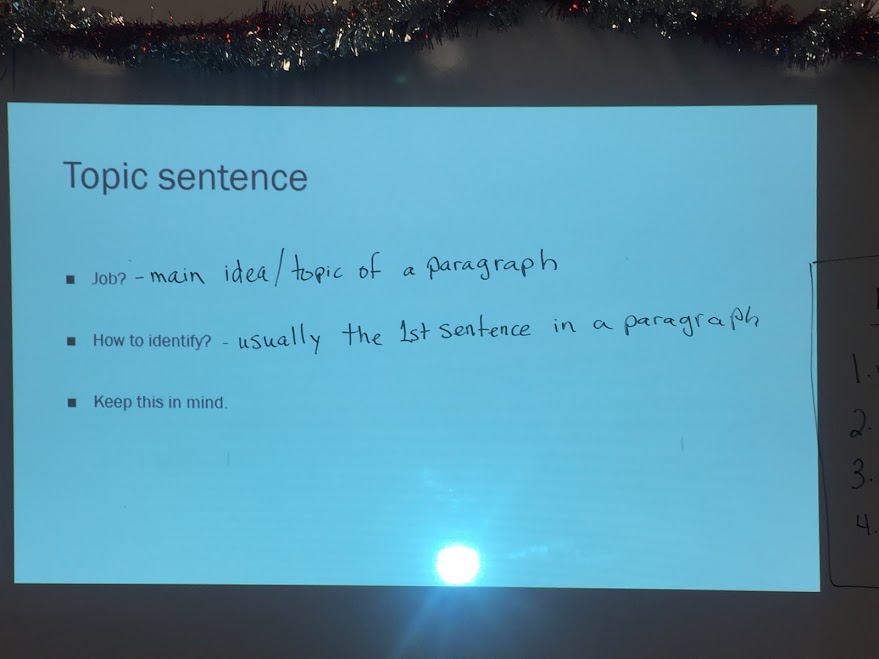 Topic sentence
▪ Job? - main idea/topic of a paragraph
▪ How to identify? - usually the 1st sentence in a paragraph
▪ Keep this in mind.
1.
2.
3.
4.